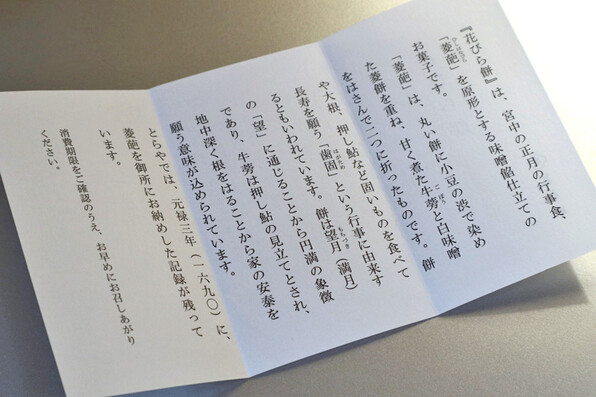 『花びら餅』は、宮中の正月の行事食、
「菱葩」を原形とする味噌餡仕立ての
お菓子です。
「菱葩」は、丸い餅に小豆の渋で染め
た菱餅を重ね、甘く煮た牛蒡と白味噌
をはさんで二つに折ったものです。餅
や大根、押し鮎など固いものを食べて
長寿を願う「歯固」という行事に由来す
るともいわれています。餅は望月（満月）
の「望」に通じることから円満の象徴
であり、牛蒡は押し鮎の見立てとされ、
地中深く根をはることから家の安泰を
願う意味が込められています。
とらやでは、元禄三年（一六九〇）に、
菱葩を御所にお納めした記録が残って
います。
消費期限をご確認のうえ、お早めにお召しあがり
ください。